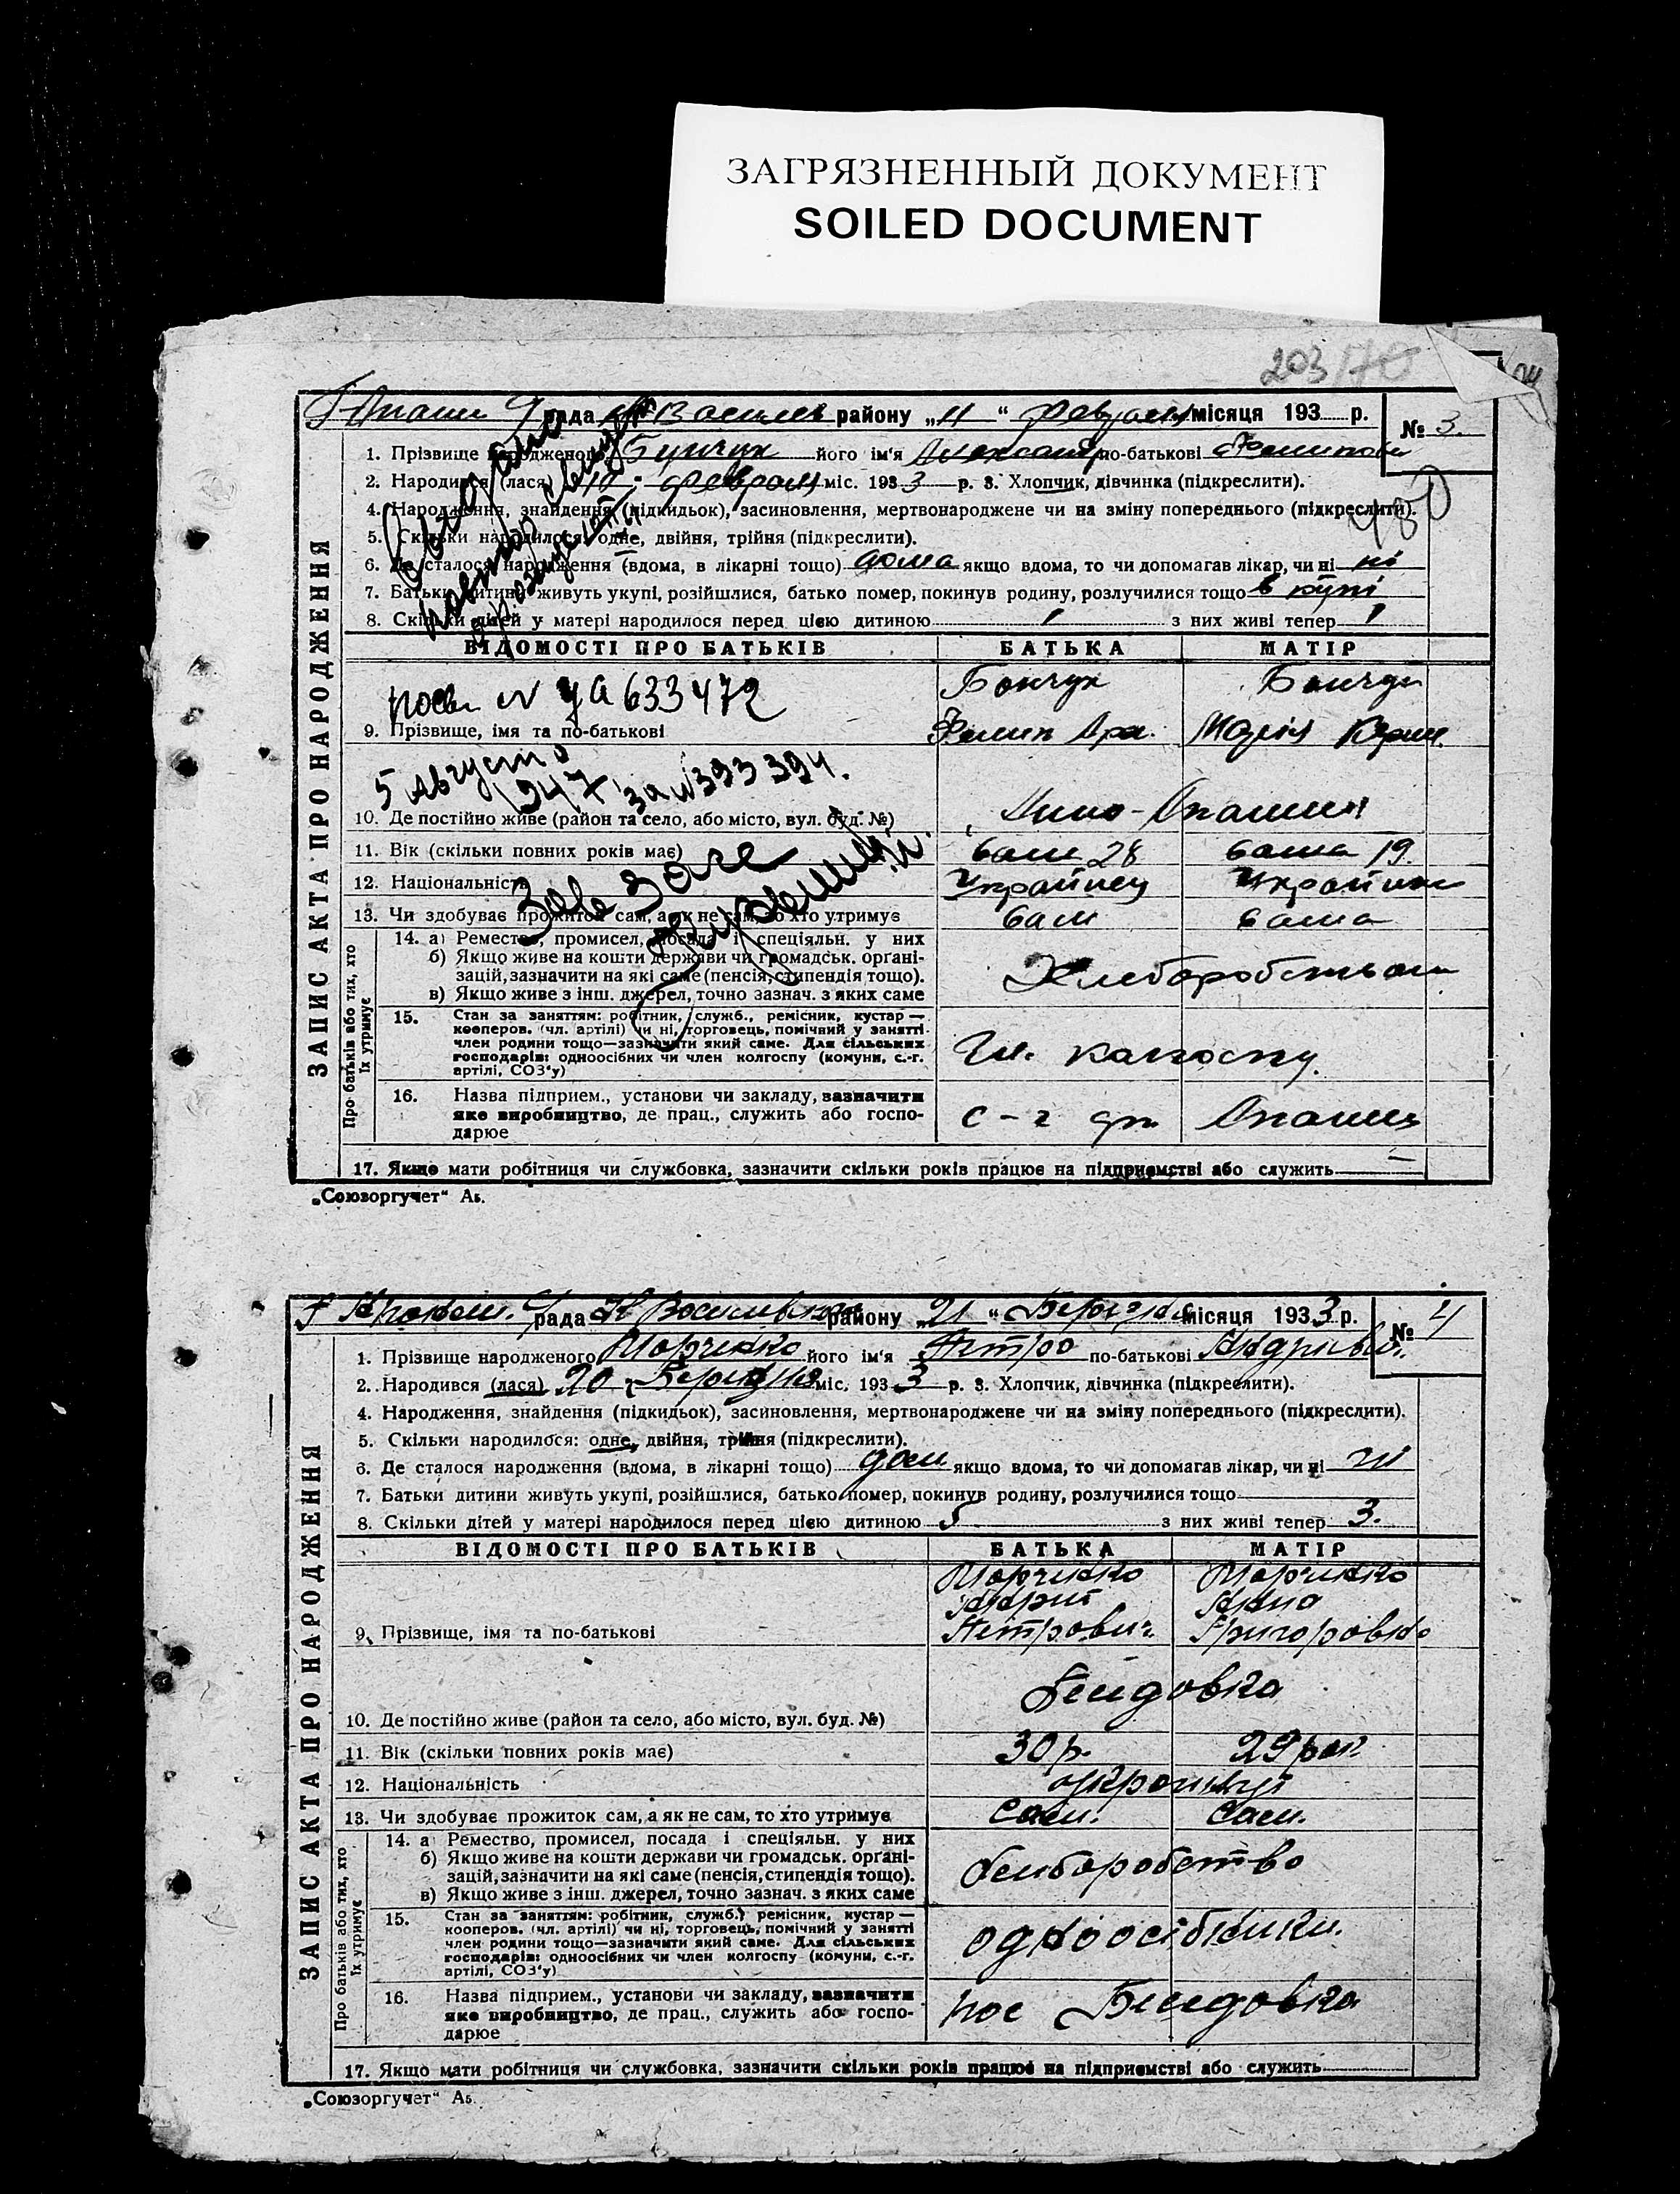 ЗАГРЯЗНЕННЫЙ ДОКУМЕНТ
SOILED DOCUMENT
203/70
рада района „11“ місяця 193 р.
№ 3.
1. Прізвище народженого його ім'я по-батькові
2. Народився (лася) 10 міс. 1933 р. 3. Хлопчик, дівчинка (підкреслити).
4. Народження, знайдення (підкидьок), засиновлення, мертвонароджене чи на зміну попереднього (підкреслити).
480
5. Скільки народилося: одне, двійня, трійня (підкреслити).
6. Де сталося народження (вдома, в лікарні тощо) дома якщо вдома, то чи допомагав лікар, чи ні ні
7. Батьки дитини живуть укупі, розійшлися, батько помер, покинув родину, розлучилися тощо в купі
8. Скільки дітей у матері народилося перед цією дитиною 1 з них живі тепер 1
ЗАПИС АКТА ПРО НАРОДЖЕННЯ
ВІДОМОСТІ ПРО БАТЬКІВ БАТЬКА МАТІР
Бончук Бончук
633472
9. Прізвище, імя та по-батькові Филип Марія
5 Августа 1947 за № 393394.
10. Де постійно живе (район та село, або місто, вул. буд. №)
11. Вік (скільки повних років має) сам 28 сама 19.
12. Національність Українец Українка
13. Чи здобуває прожиток сам, а як не сам, то хто утримує сам сама
Про батьків або тих, хто їх утримує
14. а) Ремество, промисел, посада і спеціяльн. у них
б) Якщо живе на кошти держави чи громадськ. органі-
зацій, зазначити на які саме (пенсія, стипендія тощо).
в) Якщо живе з інш. джерел, точно зазнач. з яких саме
Хлиборобством
15. Стан за заняттям: робітник, служб., ремісник, кустар —
кооперов. (чл. артілі) чи ні, торговець, помічний у занятті
член родини тощо—зазначити який саме. Для сільських
господарів: одноосібних чи член колгоспу (комуни, с.-г.
артілі, СОЗ'у)
Чл. колгоспу.
16. Назва підприєм., установи чи закладу, зазначити
яке виробництво, де прац., служить або госпо-
дарюе
с-г
17. Якщо мати робітниця чи службовка, зазначити скільки років працює на підприємстві або служить —
„Союзоргучет“ А5.
рада району „21“ Березня місяця 1933 р.
№ 4
1. Прізвище народженого Марченко його ім'я Петро по-батькові
2. Народився (лася) 20 Березня міс. 1933 р. 3. Хлопчик, дівчинка (підкреслити).
4. Народження, знайдення (підкидьок), засиновлення, мертвонароджене чи на зміну попереднього (підкреслити).
5. Скільки народилося: одне, двійня, трійня (підкреслити).
6. Де сталося народження (вдома, в лікарні тощо) дом якщо вдома, то чи допомагав лікар, чи ні ні
7. Батьки дитини живуть укупі, розійшлися, батько помер, покинув родину, розлучилися тощо
8. Скільки дітей у матері народилося перед цією дитиною 5 з них живі тепер 3.
ЗАПИС АКТА ПРО НАРОДЖЕННЯ
ВІДОМОСТІ ПРО БАТЬКІВ БАТЬКА МАТІР
Марченко Марченко
Анна
9. Прізвище, імя та по-батькові Петрович Григоровна
10. Де постійно живе (район та село, або місто, вул. буд. №)
11. Вік (скільки повних років має) 30 р. 29 рок
12. Національність
13. Чи здобуває прожиток сам, а як не сам, то хто утримує сам. сам.
Про батьків або тих, хто їх утримує
14. а Ремество, промисел, посада і спеціяльн. у них
б) Якщо живе на кошти держави чи громадськ. органі-
зацій, зазначити на які саме (пенсія, стипендія тощо).
в) Якщо живе з інш. джерел, точно зазнач. з яких саме
хлиборобство
15. Стан за заняттям: робітник, служб., ремісник, кустар —
кооперов. (чл. артілі) чи ні, торговець, помічний у занятті
член родини тощо—зазначити який саме. Для сільських
господарів: одноосібних чи член колгоспу (комуни, с.-г.
артілі, СОЗ'у)
одноосібники.
16. Назва підприєм., установи чи закладу, зазначити
яке виробництво, де прац., служить або госпо-
дарюе
пос
17. Якщо мати робітниця чи службовка, зазначити скільки років працює на підприємстві або служить
„Союзоргучет“ А5.